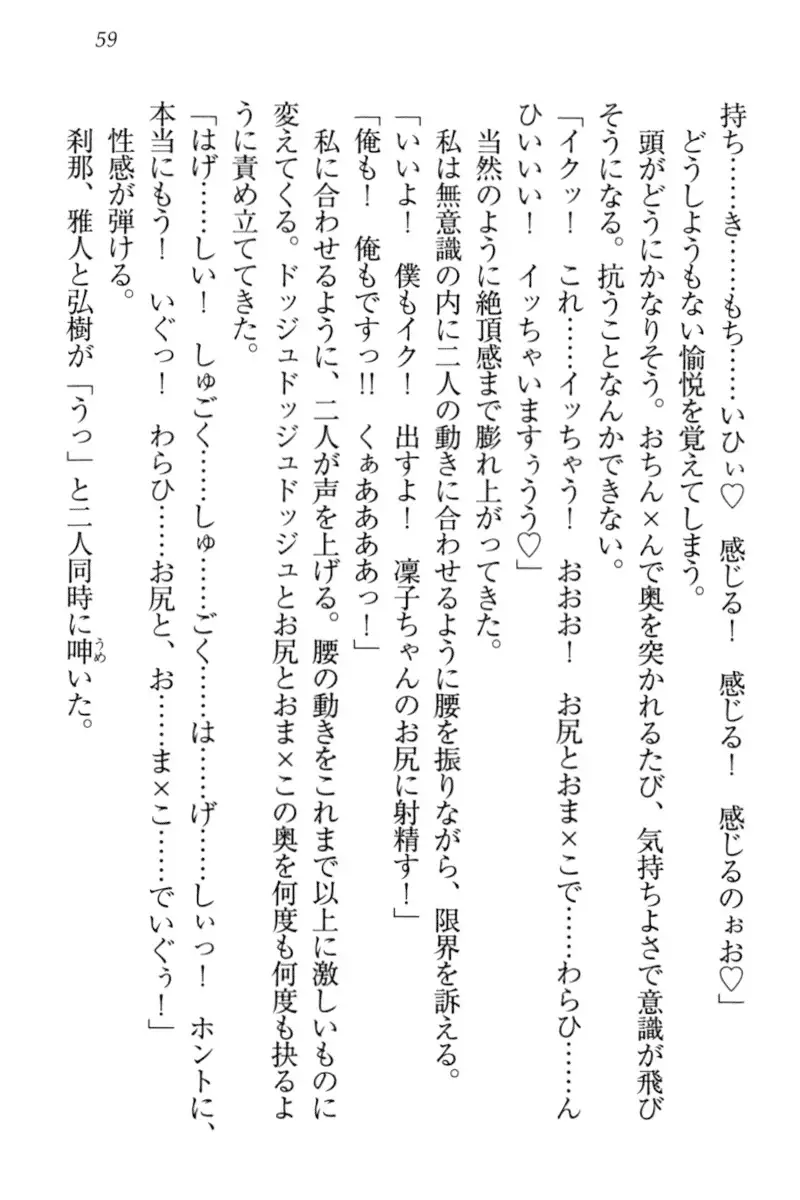 59
持ち……き……もち……いひぃ♡　感じる！　感じる！　感じるのぉお♡」
どうしようもない愉悦を覚えてしまう。
頭がどうにかなりそう。おちん×んで奥を突かれるたび、気持ちよさで意識が飛び
そうになる。抗うことなんかできない。
「イクッ！　これ……イッちゃう！　おおお！　お尻とおま×こで……わらひ……ん
ひいいい！　イッちゃいますぅうう♡」
当然のように絶頂感まで膨れ上がってきた。
私は無意識の内に二人の動きに合わせるように腰を振りながら、限界を訴える。
「いいよ！　僕もイク！　出すよ！　凛子ちゃんのお尻に射精す！」
「俺も！　俺もですっ!!　くぁああああっ！」
私に合わせるように、二人が声を上げる。腰の動きをこれまで以上に激しいものに
変えてくる。ドッジュドッジュとお尻とおま×この奥を何度も何度も抉るよ
うに責め立ててきた。
「はげ……しい！　しゅごく……しゅ……ごく……は……げ……しぃっ！　ホントに、
本当にもう！　いぐっ！　わらひ……お尻と、お……ま×こ……でいぐぅ！」
性感が弾ける。
刹那、雅人と弘樹が「うっ」と二人同時に呻いた。
うめ